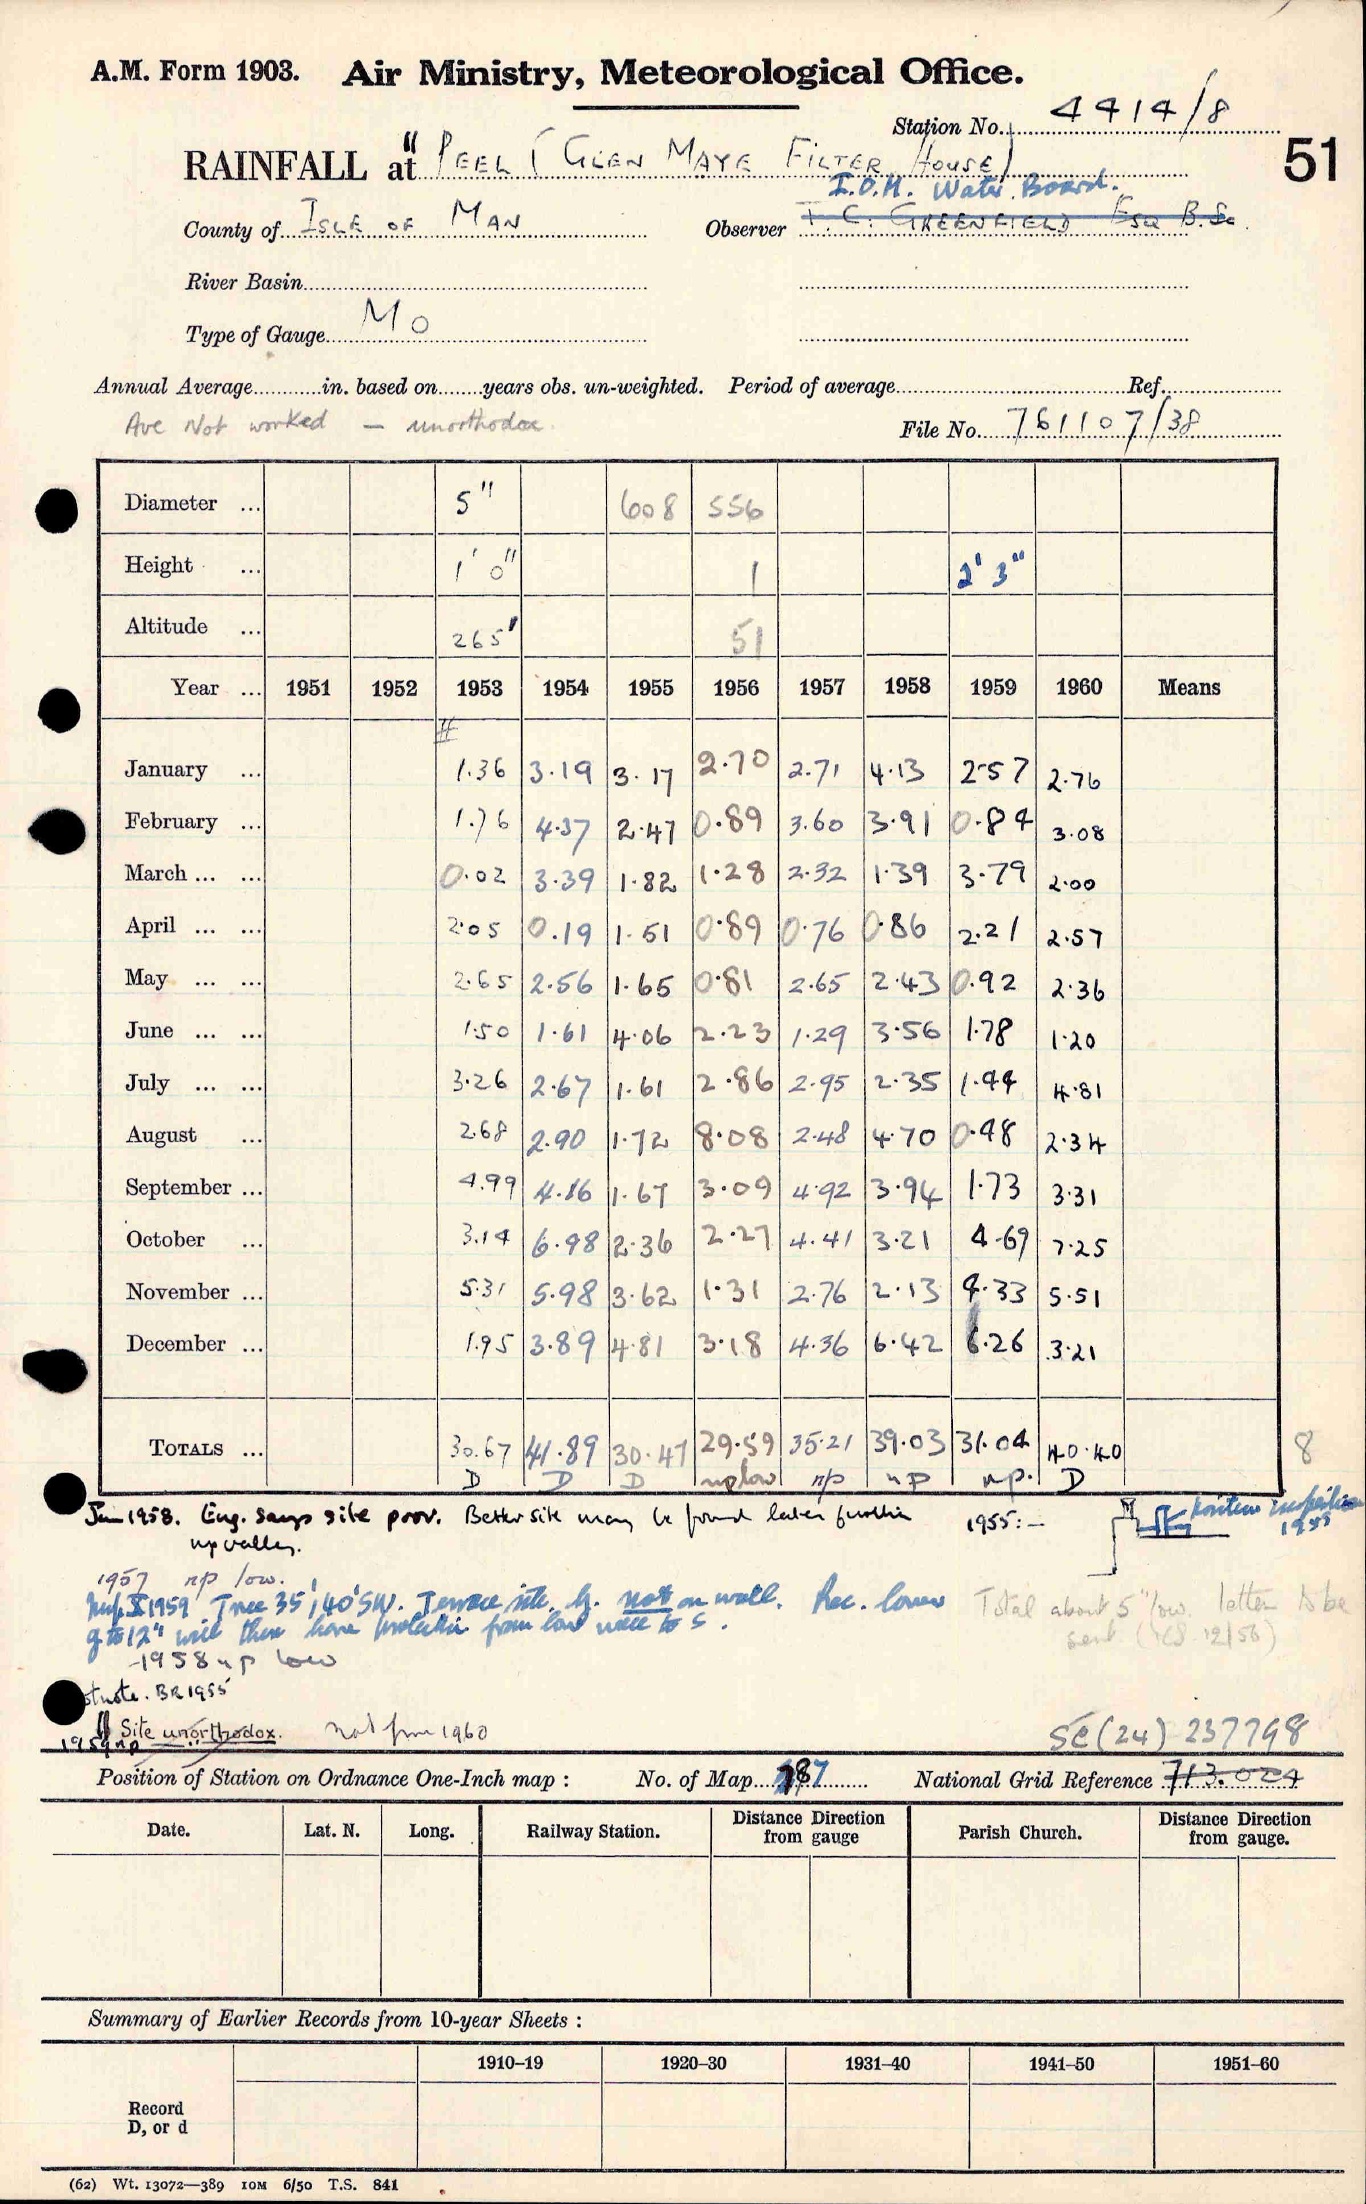 A.M. Form 1903. Air Ministry, Meteorological Office.
Station No. 4414/8
51
RAINFALL at PEEL (GLEN MAYE FILTER HOUSE)
I.O.M. Water Board.
County of ISLE OF MAN Observer T. C. GREENFIELD ESQ B.Sc.
River Basin
Type of Gauge Mo
Annual Average in. based on years obs. un-weighted. Period of average Ref.
Ave Not worked — unorthodox.
File No. 761107/38
Diameter ... 5" 608 556
Height ... 1' 0" 1 2' 3"
Altitude ... 265' 51
Year ... 1951 1952 1953 1954 1955 1956 1957 1958 1959 1960 Means
January ... 1.36 3.19 3.17 2.70 2.71 4.13 2.57 2.76
February ... 1.76 4.37 2.47 0.89 3.60 3.91 0.84 3.08
March ... ... 0.02 3.39 1.82 1.28 2.32 1.39 3.79 2.00
April ... ... 2.05 0.19 1.51 0.89 0.76 0.86 2.21 2.57
May ... ... 2.65 2.56 1.65 0.81 2.65 2.43 0.92 2.36
June ... ... 1.50 1.61 4.06 2.23 1.29 3.56 1.78 1.20
July ... ... 3.26 2.67 1.61 2.86 2.95 2.35 1.44 4.81
August ... 2.68 2.90 1.72 8.08 2.48 4.70 0.48 2.34
September ... 4.99 4.16 1.67 3.09 4.92 3.94 1.73 3.31
October ... 3.14 6.98 2.36 2.27 4.41 3.21 4.69 7.25
November ... 5.31 5.98 3.62 1.31 2.76 2.13 4.33 5.51
December ... 1.95 3.89 4.81 3.18 4.36 6.42 6.26 3.21
TOTALS ... 30.67 41.89 30.47 29.59 35.21 39.03 31.04 40.40
8
D D D np low np np np. D
Jan 1958. Eng. says site poor. Better site may be found later further
up valley.
1955:—
position inspection
1955
1957 np low.
1959 Tree 35', 40' SW. Terrace site. not on wall. Rec. lower
g to 12" will then have protection from low wall to S.
Total about 5" low. letter to be
sent. 12/56)
-1958 np low
BR 1955
Site unorthodox. Not from 1960
1959 np
SC (24) 237798
Position of Station on Ordnance One-Inch map : No. of Map 87 National Grid Reference 713.024
Date. Lat. N. Long. Railway Station. Distance Direction from gauge Parish Church. Distance Direction from gauge.
Summary of Earlier Records from 10-year Sheets :
1910–19 1920–30 1931–40 1941–50 1951–60
Record
D, or d
(62) Wt. 13072—389 10M 6/50 T.S. 841